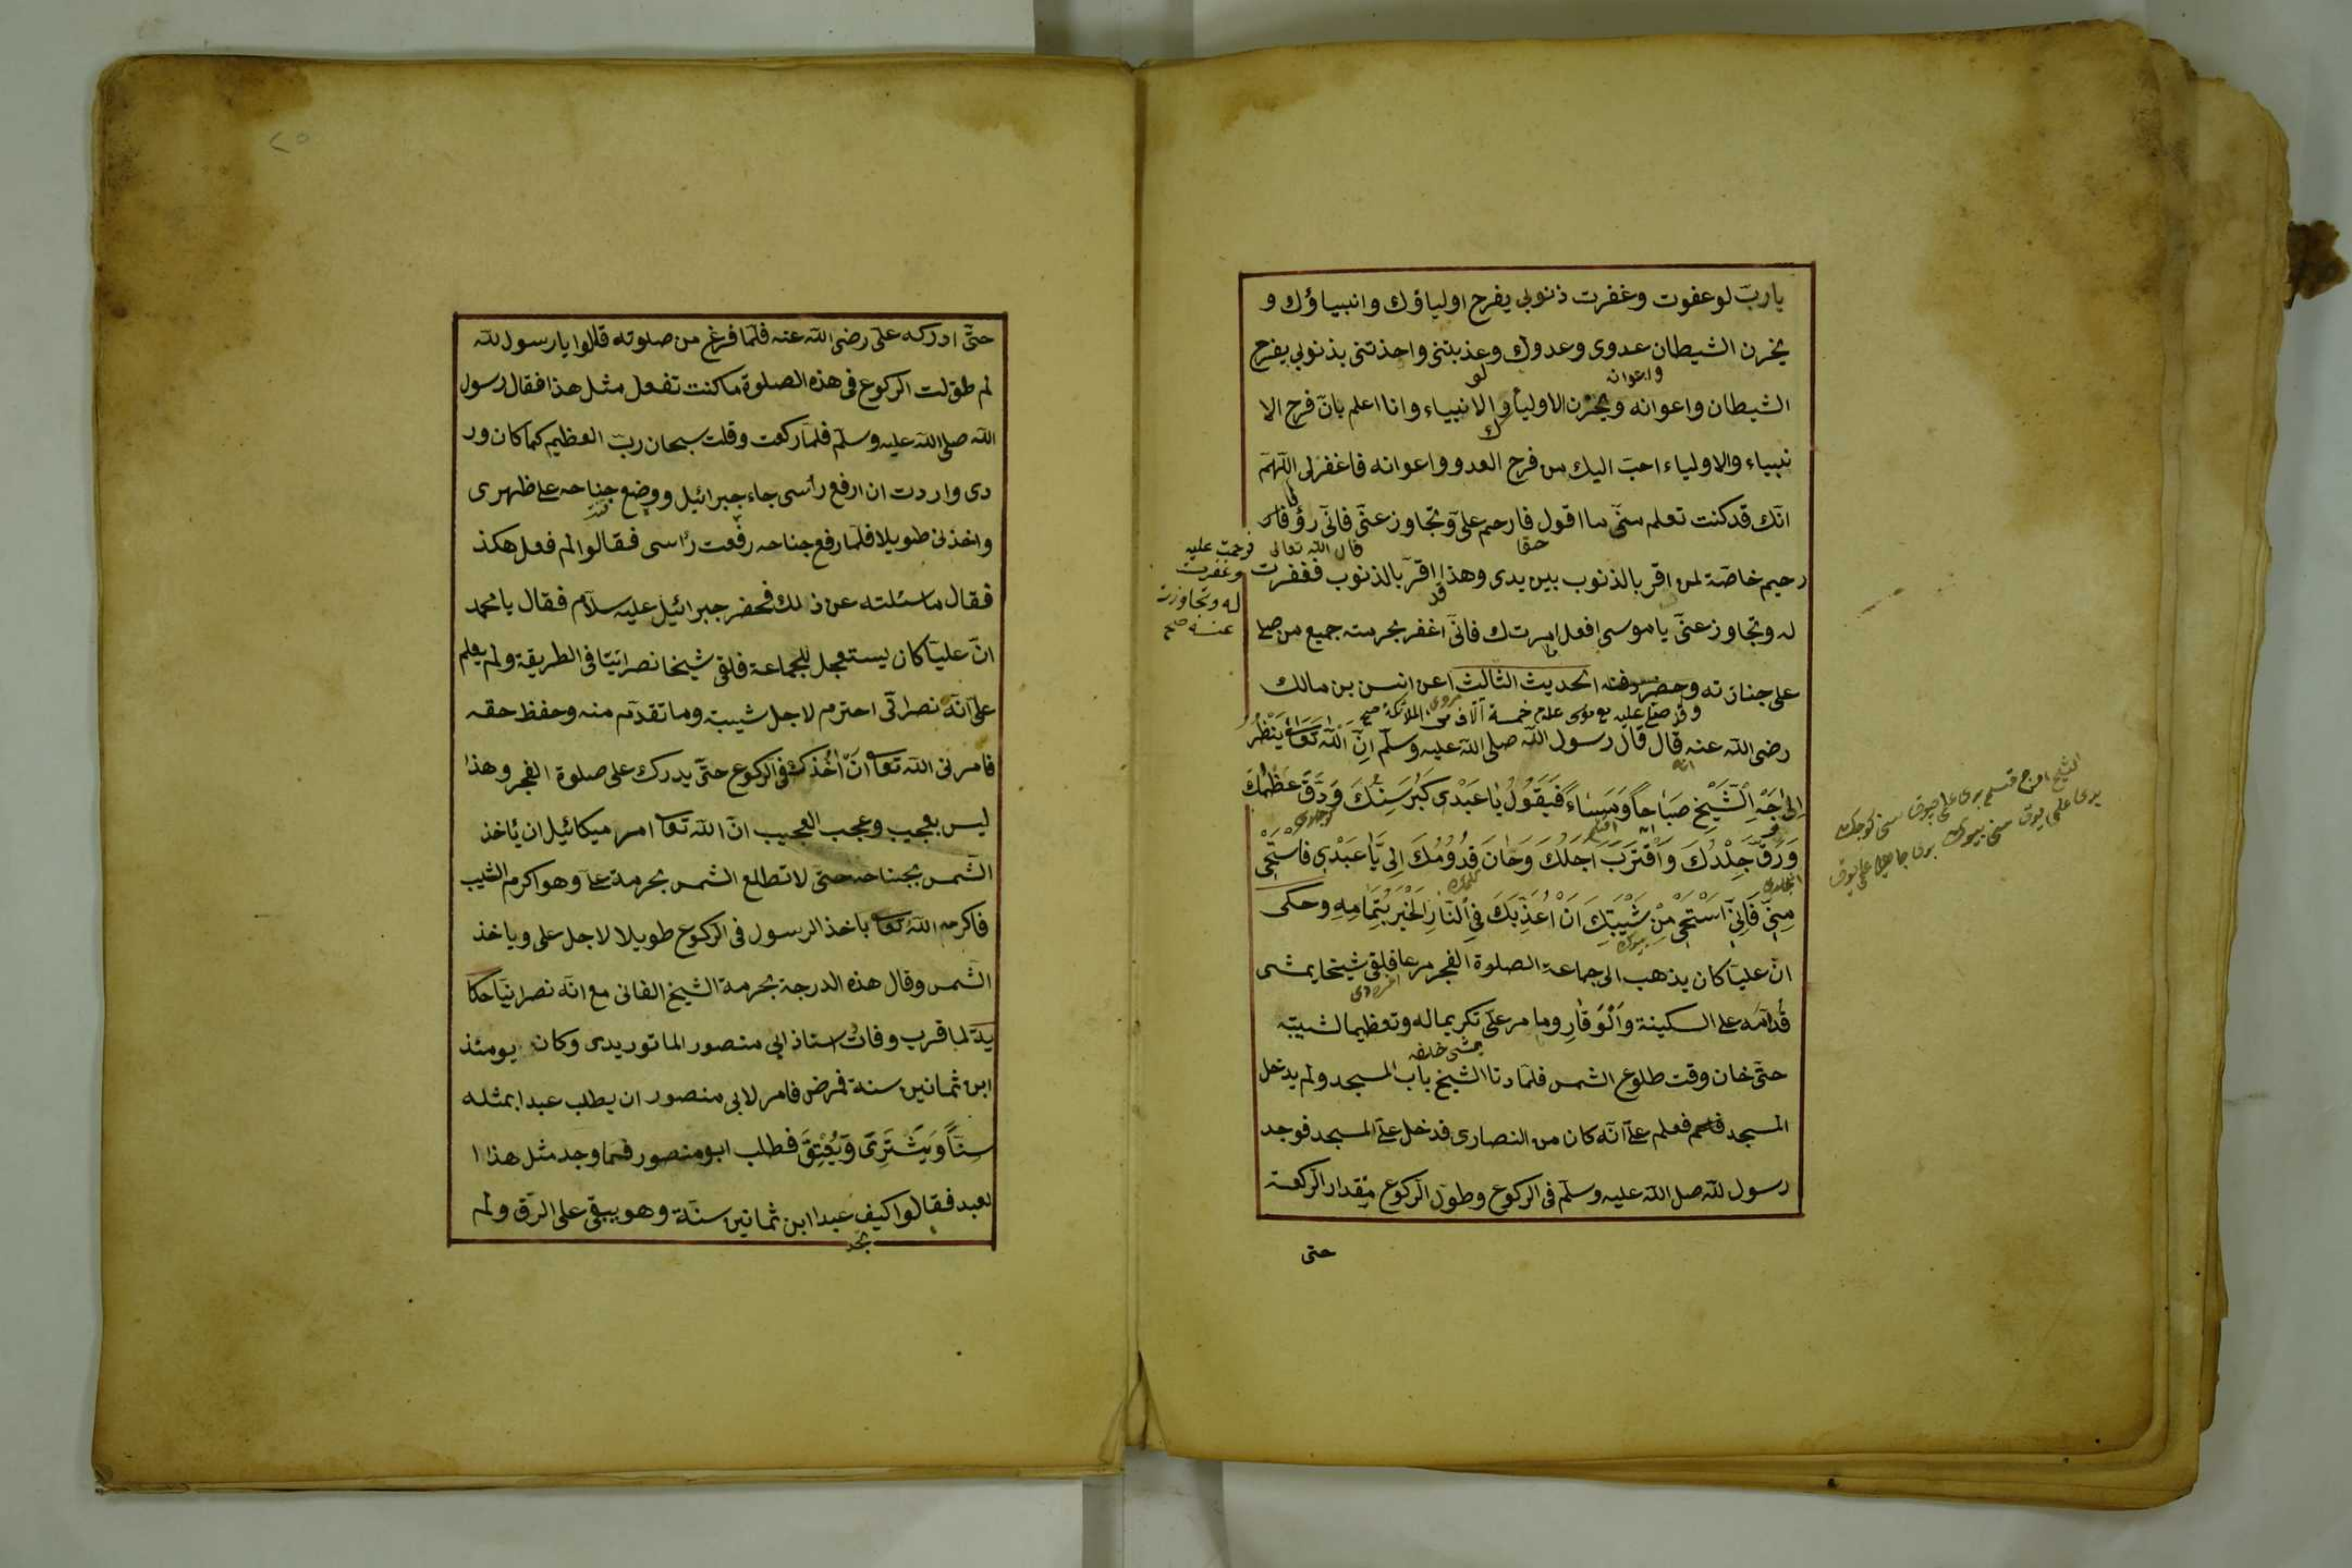 يارب لو عفوت وغفرت ذنوبى يفرح اولياؤك وانبياؤك و
يخزن الشيطان عدوى وعدوك وعذبتنى واخذتنى بذنوبى يفرح
لو
واعوانه
الشيطان واعوانه ويحزن الاولياء والانبياء وانا اعلم بانّ فرح الا
نبياء والاولياء احبّ اليك من فرح العدو واعوانه فاغفرلى اللّهمّ
انّك قد كنت تعلم منّى ما اقول فارحم علىّ وتجاوز عنّى فانّى رؤف
حقا
قال الله تعالى
فرحمت عليه
وغفرت
له وتجاوزت
عنه صح
رحيم خاصّة لمن اقر بالذنوب بين يدى وهذا اقرّ بالذنوب فغفرت
قد
له وتجاوز عنّى ياموسى افعل امرتك فانّى اغفر بحرمته جميع من صلى
ما
على جنازته وحضر دفنه الحديث الثالث عن انس بن مالك
رضى اللّه عنه قال قال رسول اللّه صلى اللّه عليه وسلّم اِنّ اللّه تعالى يَنْظُرُ
اِلى وَجْهِ الشَّيْخِ صَبَاحًا وَمَسَاءً فَيَقُولُ يَا عَبْدى كَبُرَ سِنُّكَ وَدَقَّ عَظْمُكَ
وَرَقَّ جِلْدُكَ وَاقْتَرَبَ اَجَلُكَ وَحَانَ قُدُومُكَ اِلىَّ يَا عَبْدى فَاسْتَحْى
مِنّى فَاِنّى اَسْتَحْى مِنْ شَيْبَتِكَ اَنْ اُعَذِّبَكَ فِى النَّارِ الْخَبَر بِتَمَامِهِ وحكى
انّ عليّا كان يذهب الى جماعة الصلوة الفجر مرعا فلقى شيخا يمشى
قُدّامَه على السكينة وَالْوَقَارِ وما مر علىّ تكريما له وتعظيما لشيبته
يمشى خلفه
حتّى خان وقت طلوع الشمس فلمّا دنا الشيخ باب المسجد ولم يدخل
المسجد فعلم علىّ انّه كان من النصارى فدخل علىّ المسجد فوجد
رسول للّه صل اللّه عليه وسلّم فى الركوع وطوّل الرّكوع مقدار الركعة
حتى
حتّى ادركه علىّ رضى اللّه عنه فلمّا فرغ من صلوته قالوا يا رسول للّه
لم طوّلت الركوع فى هذه الصلوة ما كنت تفعل مثل هذا فقال رسول
اللّه صلى اللّه عليه وسلّم فلمّا ركعت وقلت سبحان ربّ العظيم كما كان ور
دى واردت ان ارفع رأسى جاء جبرائيل ووضع جناحه على ظهرى
واخذنى طويلا فلمّا رفع جناحه رفعت رأسى فقالوا لم فعل هكذ
فقال ما سئلته عن ذلك فحضر جبرائيل عليه سلام فقال يا محمد
انّ عليّا كان يستعجل للجماعة فلقى شيخا نصرانيّا فى الطريقة ولم يعلم
علىّ انّه نصرانّى احترم لاجل شيبته وما تقدّم منه وحفظ حقه
فامرنى اللّه تعالى انّ اُخُذك فى الركوع حتّى يدرك على صلوة الفجر وهذا
ليس بعجيب وعجب العجيب انّ اللّه تعالى امر ميكائيل ان يأخذ
الشّمس بجناحه حتّى لا تطلع الشمس بحرمة علىّ وهو اكرم الشيب
فاكرمه اللّه تعالى باخذ الرسول فى الركوع طويلا لاجل على وياخذ
الشّمس وقال هذه الدرجة بحرمة الشيخ الفانى مع انّه نصرانيّا حكا
يةّ لما قرب وفات استاذ ابى منصور الماتوريدى وكان يومئذ
ابن ثمانين سنة فمرض فامر لابى منصور ان يطلب عبدا بمثله
سِنًّا وَيَشْتَرِىَ وَيُعْتِقَ فطلب ابو منصور فما وجد مثل هذا ا
لعبد فقالوا كيف عبدا ابن ثمانين سنّة وهو يبقى على الرّق ولم